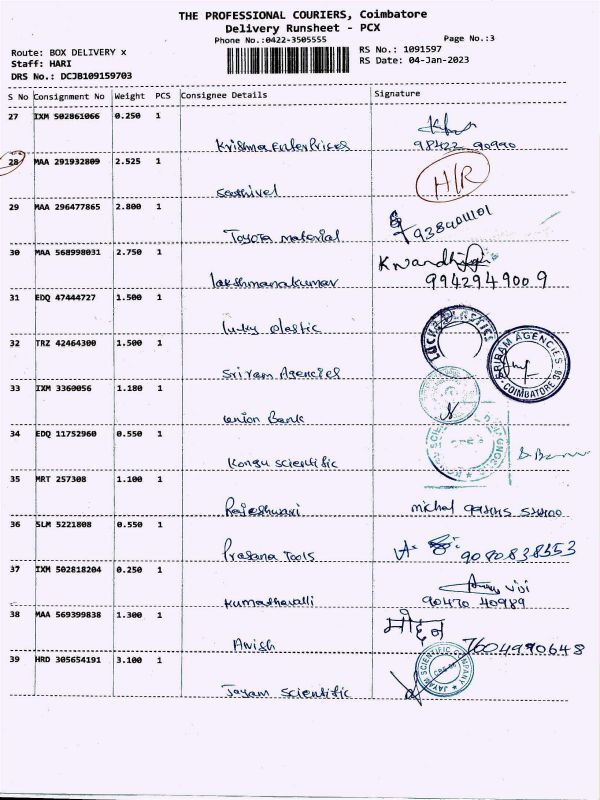 THE PROFESSIONAL COURIERS, Coimbatore
Delivery Runsheet - PCX
Phone No.:0422-3505555
Page No.:3
Route: BOX DELIVERY x
RS No.: 1091597
Staff: HARI
RS Date: 04-Jan-2023
DRS No.: DCJB109159703
S No Consignment No Weight PCS Consignee Details Signature
27 IXM 502861066 0.250 1
Krishna Enterprises 98422 90990
28 MAA 291932809 2.525 1
Sathivel H/R
29 MAA 296477865 2.800 1
Toyota material
30 MAA 568998031 2.750 1
lakshmanakumar 9942949009
31 EDQ 47444727 1.500 1
lucky plastic LUCKY PLASTICS
32 TRZ 42464300 1.500 1
Sriram Agencies SRIRAM AGENCIES COIMBATORE
33 IXM 3360056 1.180 1
union Bank
34 EDQ 11752960 0.550 1
Kongu scientific
35 MRT 257308 1.100 1
Rajeshwari michal
36 SLM 5221808 0.550 1
Prasana Tools 9080838353
37 IXM 502818204 0.250 1
viji
Kumathavalli 90470 40989
38 MAA 569399838 1.300 1
मोहन
Anish 7604990648
39 HRD 305654191 3.100 1
Jayam scientific JAYAM SCIENTIFIC COMPANY